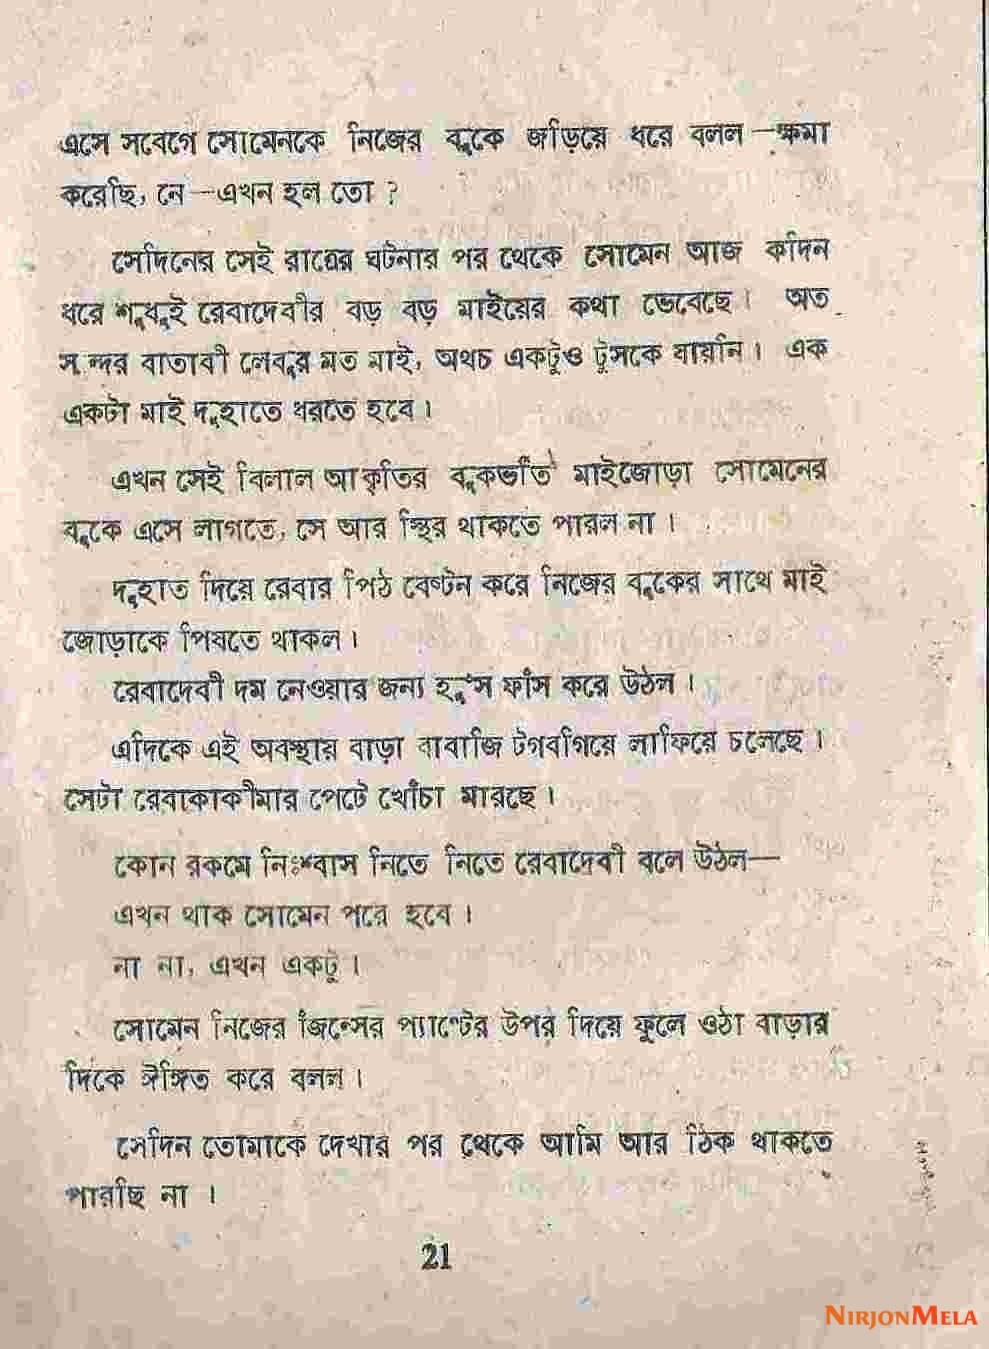 এসে সবেগে সোমেনকে নিজের বুকে জড়িয়ে ধরে বলল —ক্ষমা
করেছি, নে —এখন হল তো ?
সেদিনের সেই রাত্রের ঘটনার পর থেকে সোমেন আজ কদিন
ধরে শুধুই রেবাদেবীর বড় বড় মাইয়ের কথা ভেবেছে। অত
সুন্দর বাতাবী লেবুর মত মাই, অথচ একটুও টুসকে যায়নি। এক
একটা মাই দুহাতে ধরতে হবে।
এখন সেই বিশাল আকৃতির বুকভর্তি মাইজোড়া সোমেনের
বুকে এসে লাগতে, সে আর স্থির থাকতে পারল না।
দুহাত দিয়ে রেবার পিঠ বেষ্টন করে নিজের বুকের সাথে মাই
জোড়াকে পিষতে থাকল।
রেবাদেবী দম নেওয়ার জন্য হাঁস ফাঁস করে উঠল।
এদিকে এই অবস্থায় বাড়া বাবাজি টগবগিয়ে লাফিয়ে চলেছে।
সেটা রেবাকাকীমার পেটে খোঁচা মারছে।
কোন রকমে নিঃশ্বাস নিতে নিতে রেবাদেবী বলে উঠল—
এখন থাক সোমেন পরে হবে।
না না, এখন একটু।
সোমেন নিজের জিন্সের প্যাণ্টের উপর দিয়ে ফুলে ওঠা বাড়ার
দিকে ঈঙ্গিত করে বলল।
সেদিন তোমাকে দেখার পর থেকে আমি আর ঠিক থাকতে
পারছি না।
21
NIRJONMELA